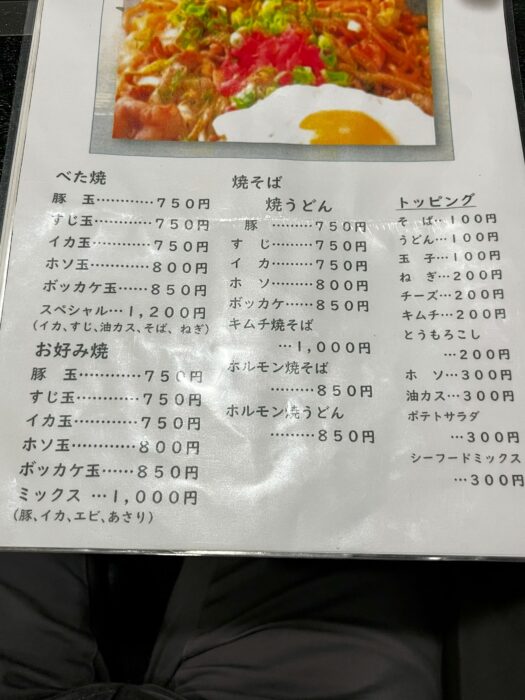 べた焼
豚　玉…………７５０円
すじ玉…………７５０円
イカ玉…………７５０円
ホソ玉…………８００円
ボッカケ玉……８５０円
スペシャル…１,２００円
（イカ、すじ、油カス、そば、ねぎ）
お好み焼
豚　玉…………７５０円
すじ玉…………７５０円
イカ玉…………７５０円
ホソ玉…………８００円
ボッカケ玉……８５０円
ミックス …１,０００円
（豚、イカ、エビ、あさり）
焼そば
焼うどん
豚 ………７５０円
す　じ………７５０円
イ　カ………７５０円
ホ　ソ………８００円
ボッカケ……８５０円
キムチ焼そば
…１,０００円
ホルモン焼そば
………８５０円
ホルモン焼うどん
………８５０円
トッピング
そ　ば…１００円
うどん…１００円
玉　子…１００円
ね　ぎ…２００円
チーズ…２００円
キムチ…２００円
とうもろこし
…２００円
ホ　ソ…３００円
油カス…３００円
ポテトサラダ
…３００円
シーフードミックス
…３００円